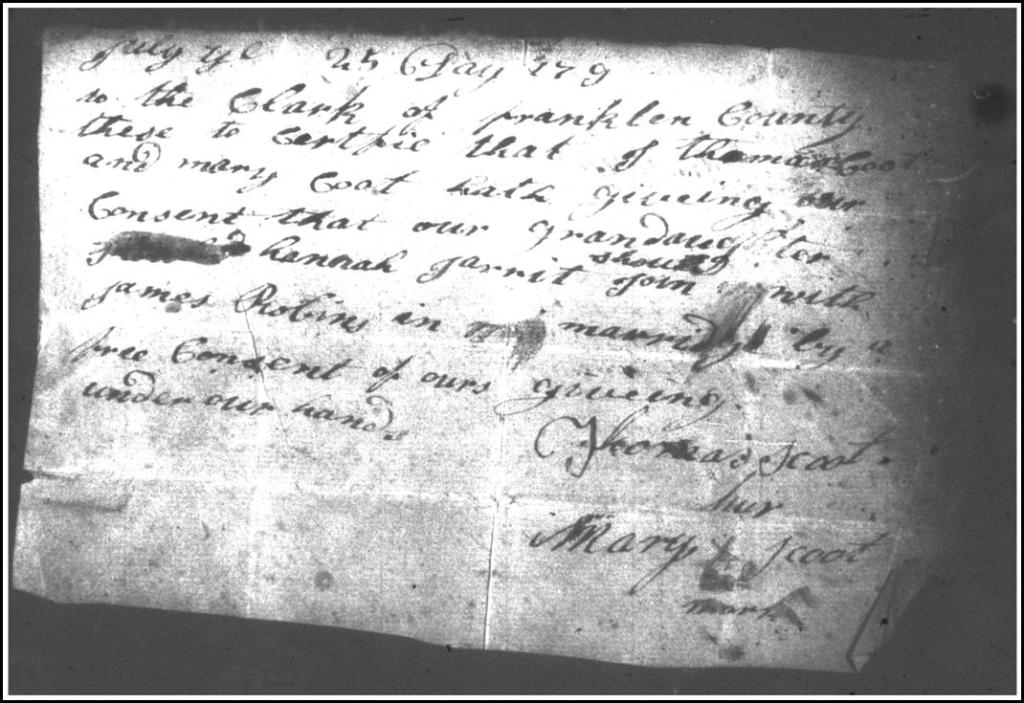 july ye 25 Day 179
to the Clark of franklen County
these to Certfie that of thomas Scoot
and mary Scoot hath giveing our
Consent that our grandaughter
hannah jarrit should join with
james Robins in marridg by a
free Consent of ours giveing
under our hands
Thomas Scoot.
hur
Mary X Scoot
mark